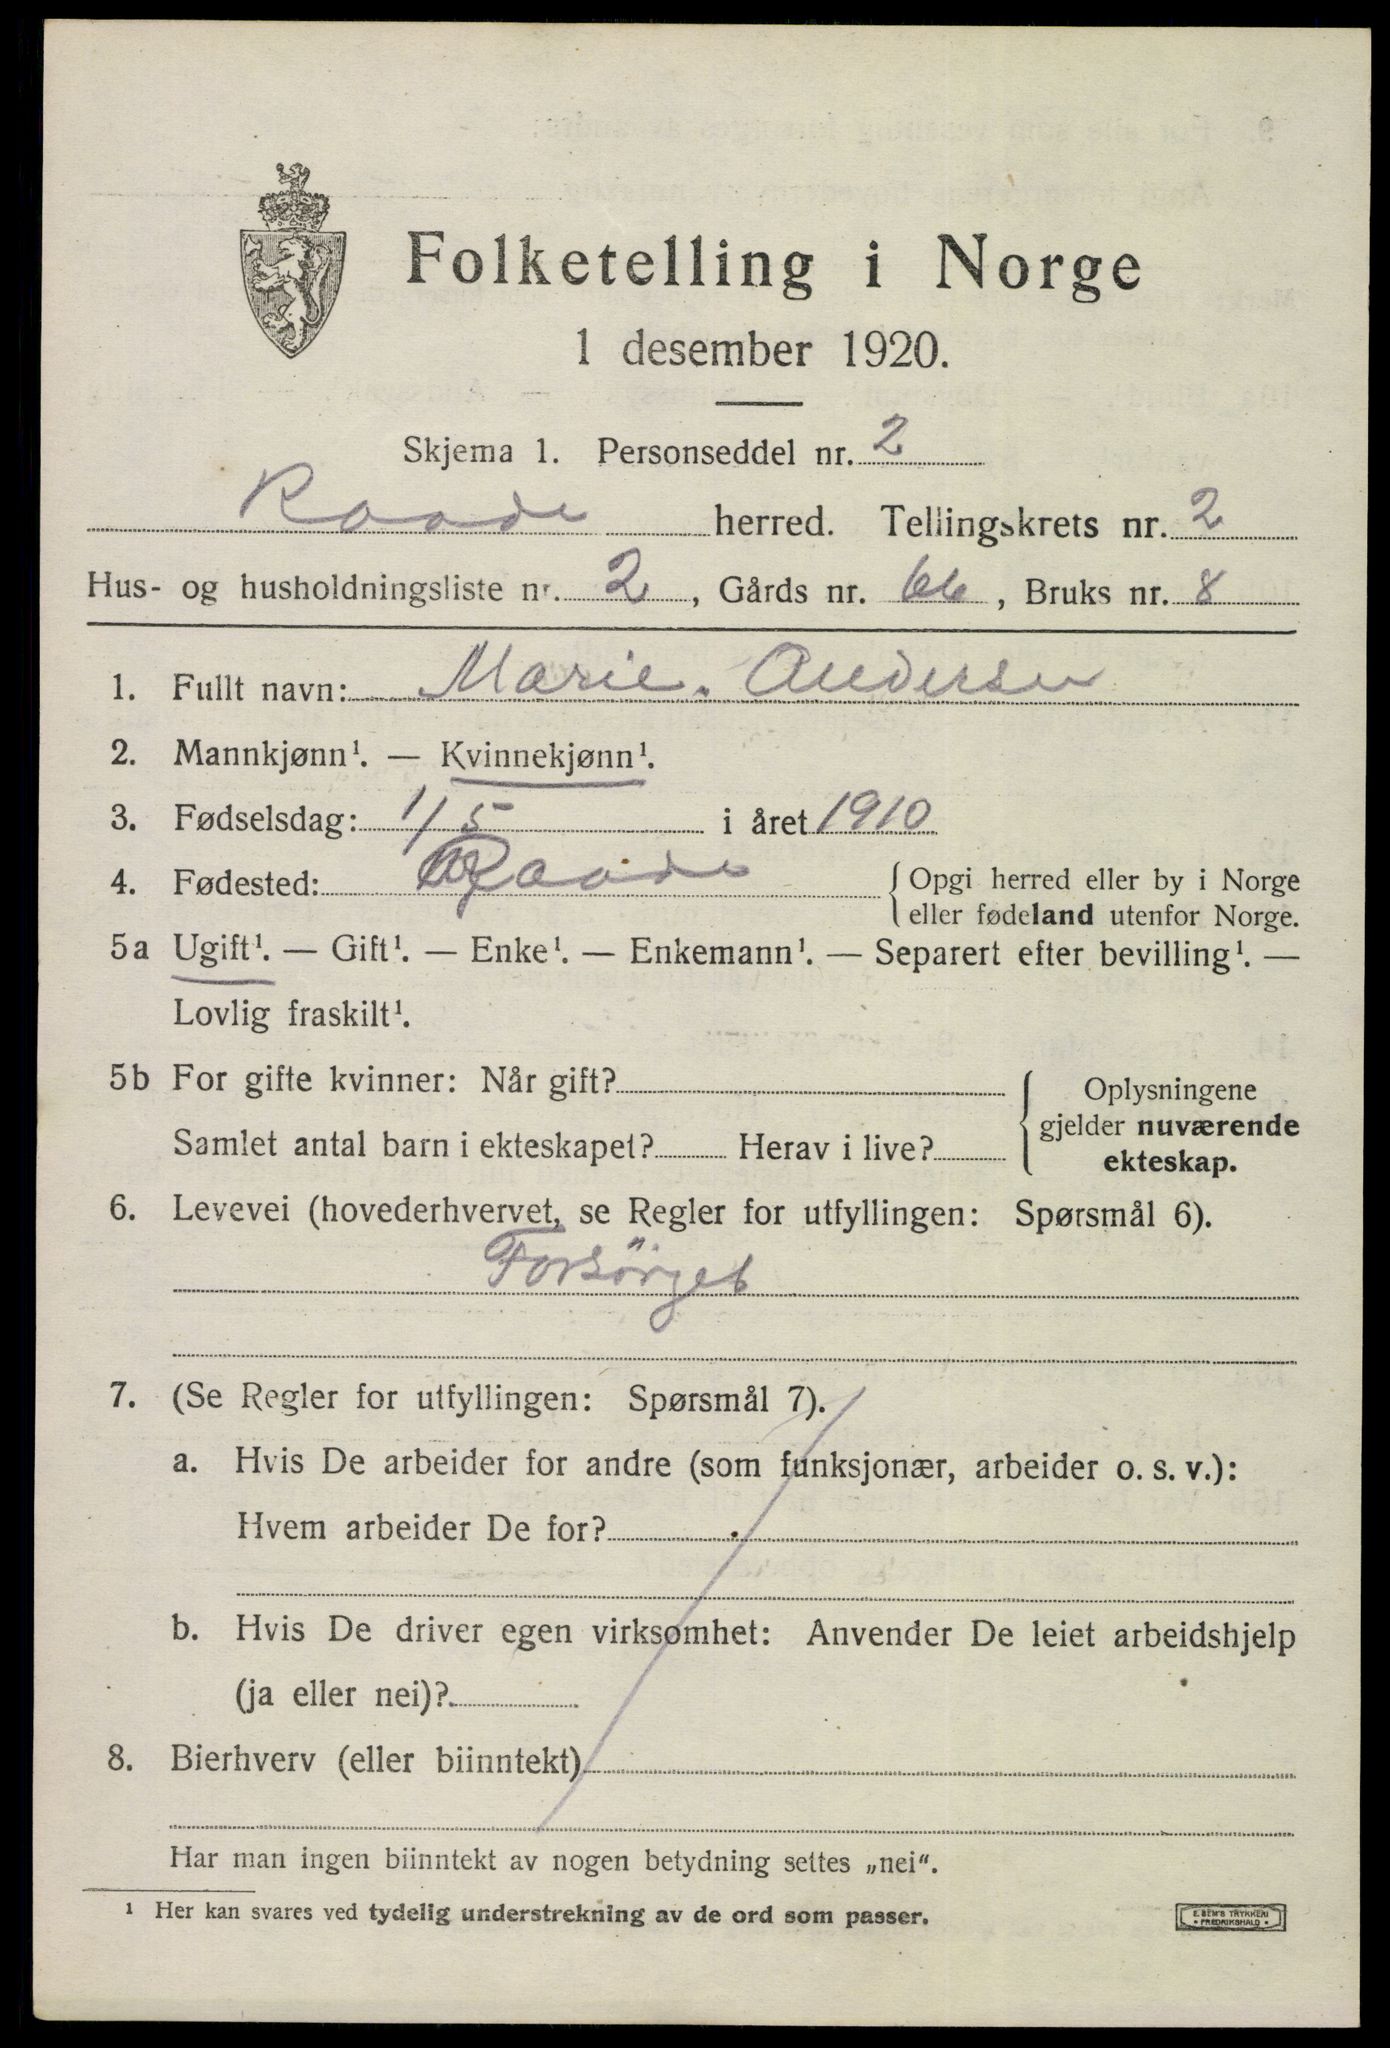 Folketelling i Norge
1 desember 1920.
Skjema 1. Personseddel nr. 2
Raade herred. Tellingskrets nr. 2
Hus- og husholdningsliste nr. 2, Gårds nr. 66, Bruks nr. 8
1. Fullt navn: Marie. Andersen
2. Mannkjønn¹. — Kvinnekjønn¹.
3. Fødselsdag: 1/5 i året 1910
4. Fødested: Raade { Opgi herred eller by i Norge
eller fødeland utenfor Norge.
5a Ugift¹. — Gift¹. — Enke¹. — Enkemann¹. — Separert efter bevilling¹. —
Lovlig fraskilt¹.
5b For gifte kvinner: Når gift? { Oplysningene
gjelder nuværende
Samlet antal barn i ekteskapet? Herav i live?
ekteskap.
6. Levevei (hovederhvervet, se Regler for utfyllingen: Spørsmål 6).
Forsörget
7. (Se Regler for utfyllingen: Spørsmål 7).
a. Hvis De arbeider for andre (som funksjonær, arbeider o. s. v.):
Hvem arbeider De for?
b. Hvis De driver egen virksomhet: Anvender De leiet arbeidshjelp
(ja eller nei)?
8. Bierhverv (eller biinntekt)
Har man ingen biinntekt av nogen betydning settes „nei“.
¹ Her kan svares ved tydelig understrekning av de ord som passer.
E. SEM'S TRYKKERI
• FREDRIKSHALD •